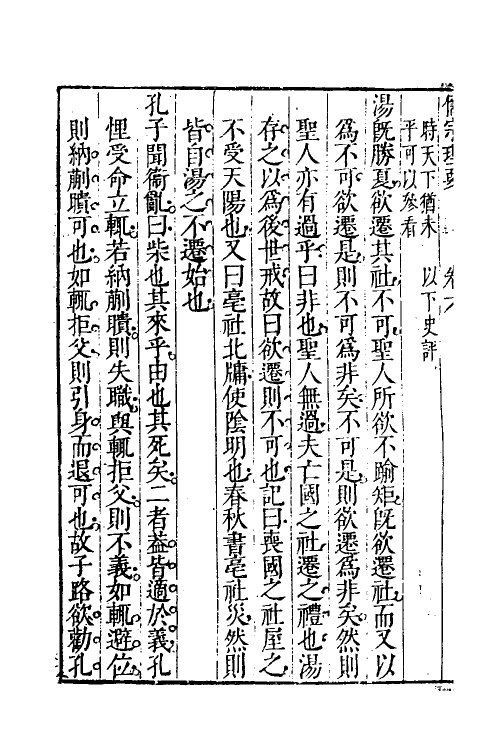 儒宗理要 卷八
時天下猶未 以下史評
平可以參看
湯旣勝夏欲遷其社不可聖人所欲不踰矩旣欲遷社而又以
爲不可欲遷是則不可爲非矣不可是則欲遷爲非矣然則
聖人亦有過乎曰非也聖人無過夫亡國之社遷之禮也湯
存之以爲後世戒故曰欲遷則不可也記曰喪國之社屋之
不受天陽也又曰亳社北牖使陰明也春秋書亳社災然則
皆自湯之不遷始也
孔子聞衞亂曰柴也其來乎由也其死矣二者葢皆適於義孔
悝受命立輒若納蒯聵則失職與輒拒父則不義如輒避位
則納蒯聵可也如輒拒父則引身而退可也故子路欲勸孔